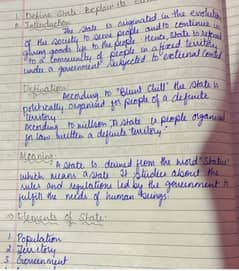 1 Define State. Explain its
Introduction
The State is originated in the evolution
of the society to serve people and to continue is
giving goods life to the people. Hence, State is refered
to a community of people in a fixed territory,
under a government subjected to external control
Defination
According to "Blunt Chill" the State is
politically organised for people of a definite
territory
According to willson A state is people organised
for law within a definite territory.
Meaning
A State is derived from the word "Status"
which means a state It studies about the
rules and regulations led by the government to
fulfill the needs of human beings.
Elements of State
1 Population
2 Territory
3 Government